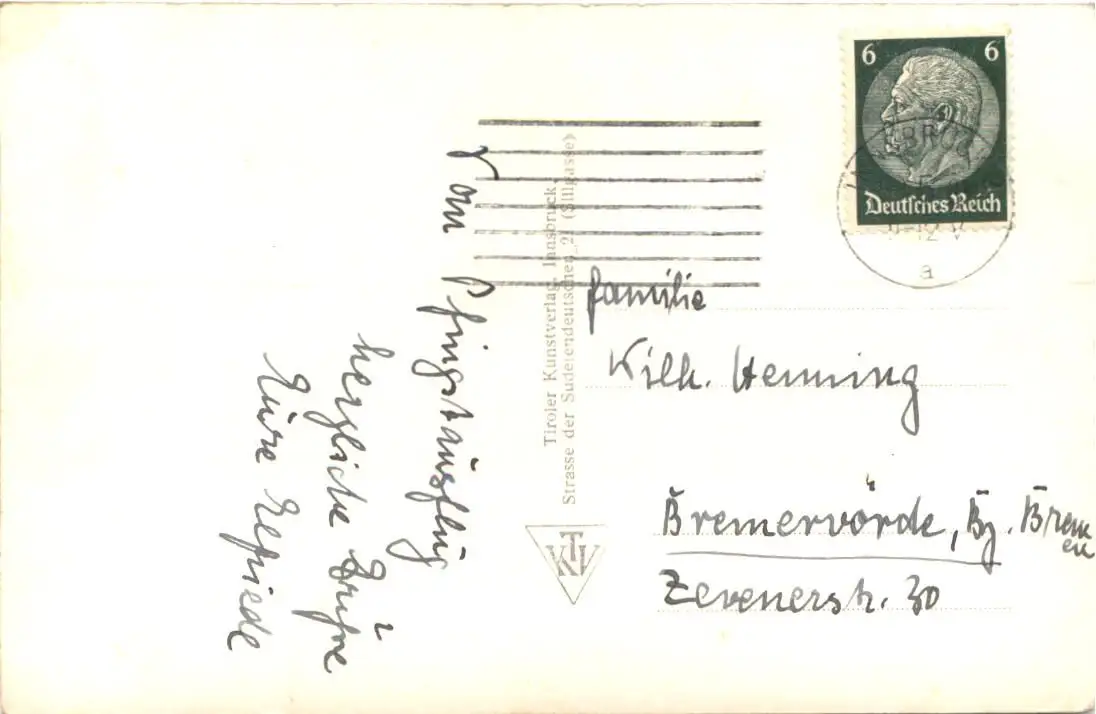 6 6
Deutsches Reich
a
Tiroler Kunstverlag, Innsbruck,
Strasse der Sudetendeutschen 21 (Sillgasse)
KTV
Familie
Wilh. Henning
Bremervörde, Bz. Bremen
Zevenerstr. 30
Pfingstausflug
herzliche Grüße
Eure Elfriede